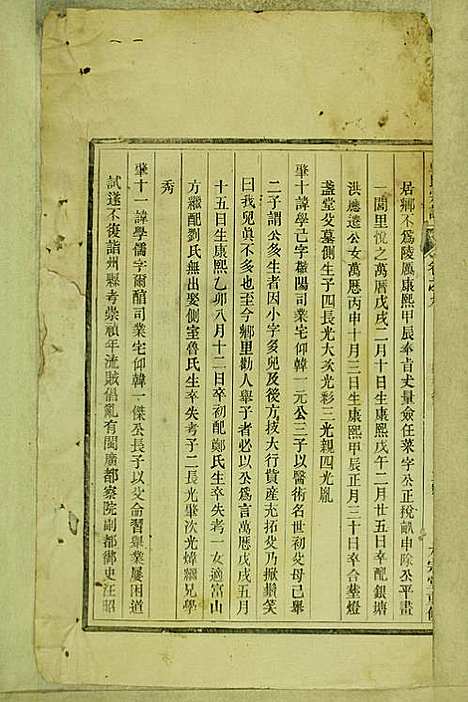 居鄉不爲陵厲康熙甲辰奉旨丈量僉任菜字公正稅畝申除公平晝
一閭里悅之萬曆戊戌二月十日生康熙戊午二月廿五日辛配銀塘
洪應達公女萬曆丙申十月三日生康熙甲辰正月三十日卒合塟燈
盞堂父墓側生子四長光大次光彩三光親四光胤
肇十諱學己字 陽司業宅仰韓一元公三子以醫術名世初父母已舉
二子謂公多生者因小字多兒及後方技大行貲産尤拓父乃掀鬚笑
曰我兒眞不多也至今鄉里勸人舉子者必以公爲言萬曆戊戌五月
十五日生康熙乙卯八月十二日卒初配鄭氏生卒失考一女適富山
方 配劉氏無出娶側室魯氏生卒失考子二長光肇次光煒繼兄學
秀
肇十一諱學儒字爾 司業宅仰韓一傑公長子以父命習舉業屢困道
試遂不復詣州縣考崇禎年流賊倡亂有閩廣都察院副都御史汪昭